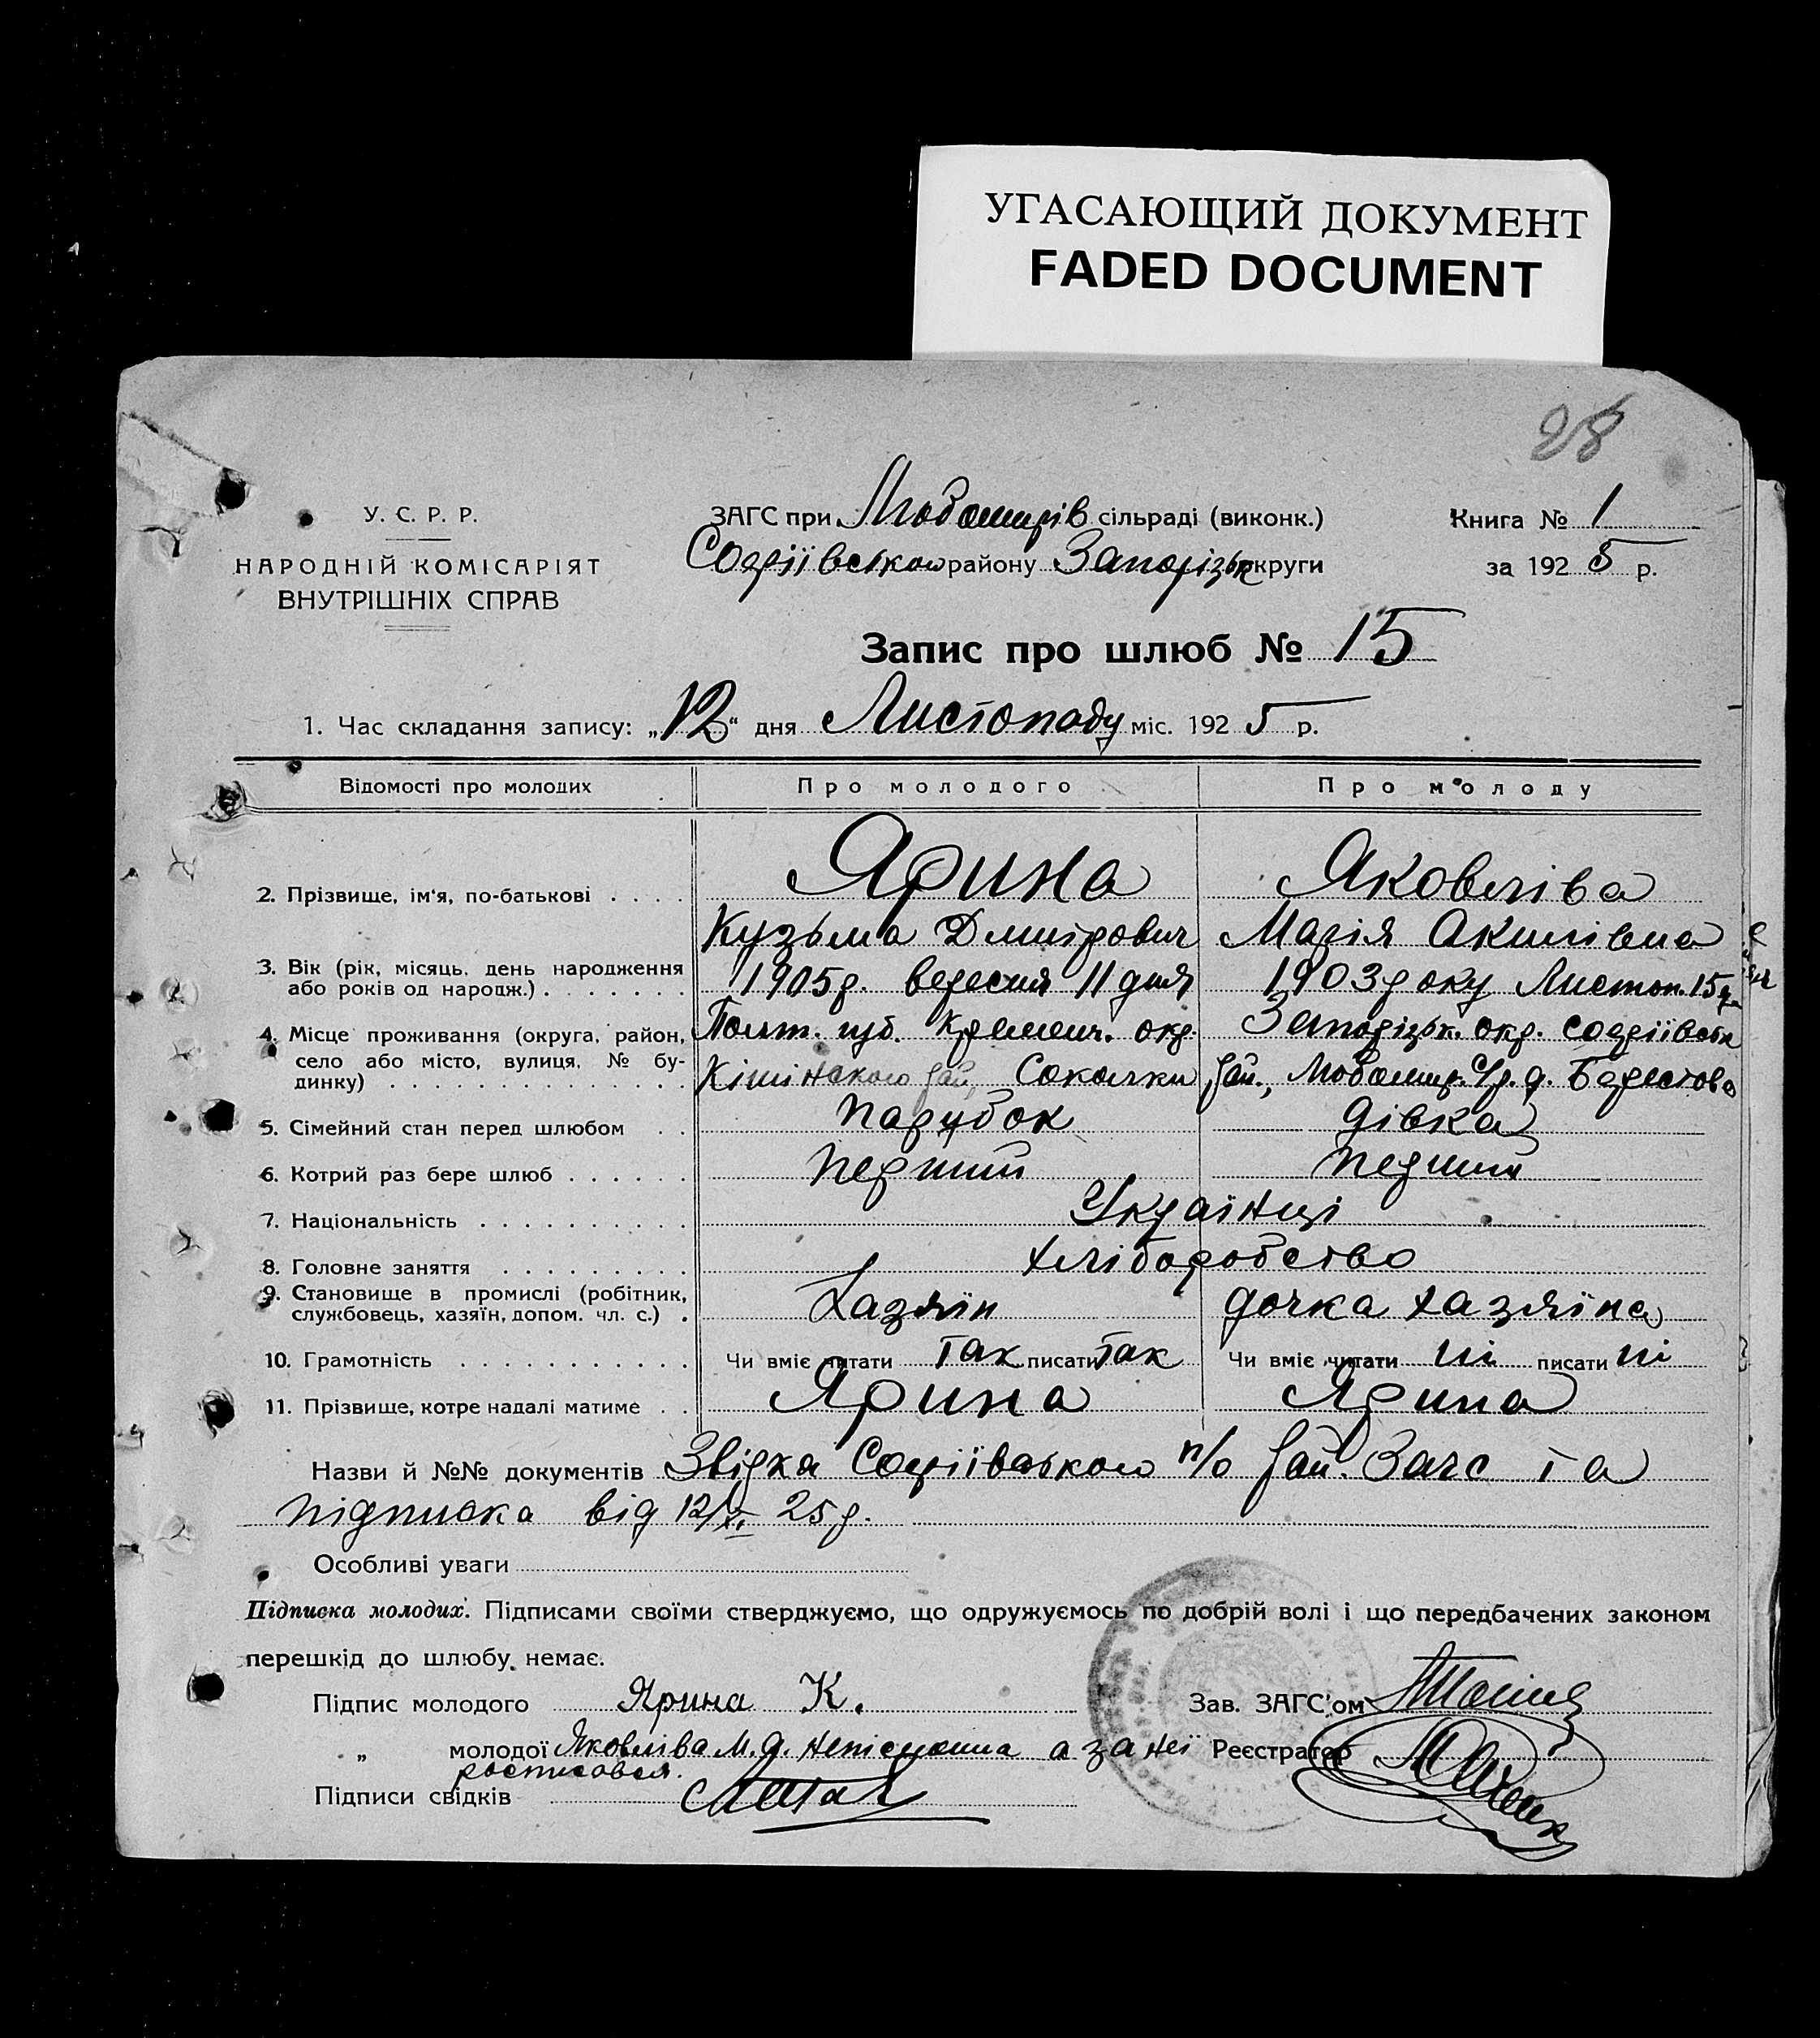 УГАСАЮЩИЙ ДОКУМЕНТ
FADED DOCUMENT
28
У. С. Р. Р.
НАРОДНІЙ КОМІСАРІЯТ
ВНУТРІШНІХ СПРАВ
ЗАГС при Любомирів сільраді (виконк.)
Софіївського району Запорізьк округи
Книга № 1
за 1925 р.
Запис про шлюб № 15
1. Час складання запису: „12“ дня Листопаду міс. 1925 р.
Відомості про молодих
Про молодого
Про молоду
2. Прізвище, ім'я, по-батькові . . . .
Ярина
Кузьма Дмитрович
Яковлева
Марія Акимівна
3. Вік (рік, місяць, день народження
або років од народж.) . . . . . . .
1905р. вересня 11 дня
1903року Листоп. 15 дн
4. Місце проживання (округа, район,
село або місто, вулиця, № бу-
динку) . . . . . . . . . . . . . . .
Полт. губ. Кременч. окр.
Кішінского рай, Сокилки
Запорізьк. окр. Софіївськ
рай., Любомир. С/р. д. Берестова
5. Сімейний стан перед шлюбом . .
парубок
дівка
6. Котрий раз бере шлюб . . . . . .
перший
перший
7. Національність . . . . . . . . . .
Українці
8. Головне заняття . . . . . . . . .
хліборобство
9. Становище в промислі (робітник,
службовець, хазяїн, допом. чл. с.) .
Хазяїн
дочка хазяїна
10. Грамотність . . . . . . . . . . .
Чи вміє читати так писати так
Чи вміє читати ні писати ні
11. Прізвище, котре надалі матиме . .
Ярина
Ярина
Назви й №№ документів Звідка Софіївського п/о рай. Загс та
підписка від 12/XI 25р.
Особливі уваги
Підписка молодих. Підписами своїми стверджуємо, що одружуємось по добрій волі і що передбачених законом
перешкід до шлюбу немає.
Підпис молодого Ярина К.
Зав. ЗАГС'ом
„ молодої Яковліва М. А. неписьмена а за неї
росписався.
Реєстратор
Підписи свідків